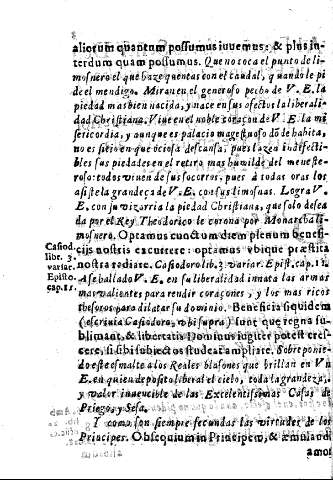 aliorum quantum possumus iuvemus: & plus in-
terdum quam possumus. Que no toca el punto de li-
mosnero el que haze quentas con el caudal, quando le pi
de el mendigo. Miran en el generoso pecho de V. E. la
piedad mas bien nacida, y nace en sus afectos la liberali-
dad Christiana. Viue en el noble coraçon de V. E. la mi
sericordia, y aunque es palacio magestuoso dõ de habita,
no es sitio en que ociosa descansa, pues la zen indefecti-
bles sus piedades en el retiro mas humilde del meneste-
roso: todos viuen de sus socorros, pues à todas oras los
asiste la grandeça de V. E. con sus limosnas. Logra V.
E. con ju vizarria la piedad Christiana, que solo desea
da por el Rey Theodorico le corona por Monarcha li-
mosnero. Optamus cunctum diem plenum benefi-
cijs nostris excurrere: optamus vbique præstita
nostra radiare. Casiodoro lib. 3. variar. Epist. cap. 11.
Casiod.
lib. 3.
variar.
Episto.
cap. 11.
A se hallado V. E. en su liberalidad innata las armas
mas valientes para rendir coraçones, y los mas ricos
thesoros para dilatar su dominio. Beneficia siquidem
(escriuia Casiodoro, vbi supra) sunt quæ regna su-
blimant, & libertatis Dominus iugiter potest cres-
cere, si sibi subiectos studeat ampliare. Sobreponie-
do este esmalte a los Reales blasones que brillan en V.
E. en quien deposito liberal el cielo, toda la grandeza,
y valor inuencible de las Excelentissimas Casas de
Priego, y Sesa.
Y como son siempre fecundas las virtudes de los
Principes. Obsequium in Principem, & æmulandi
amor